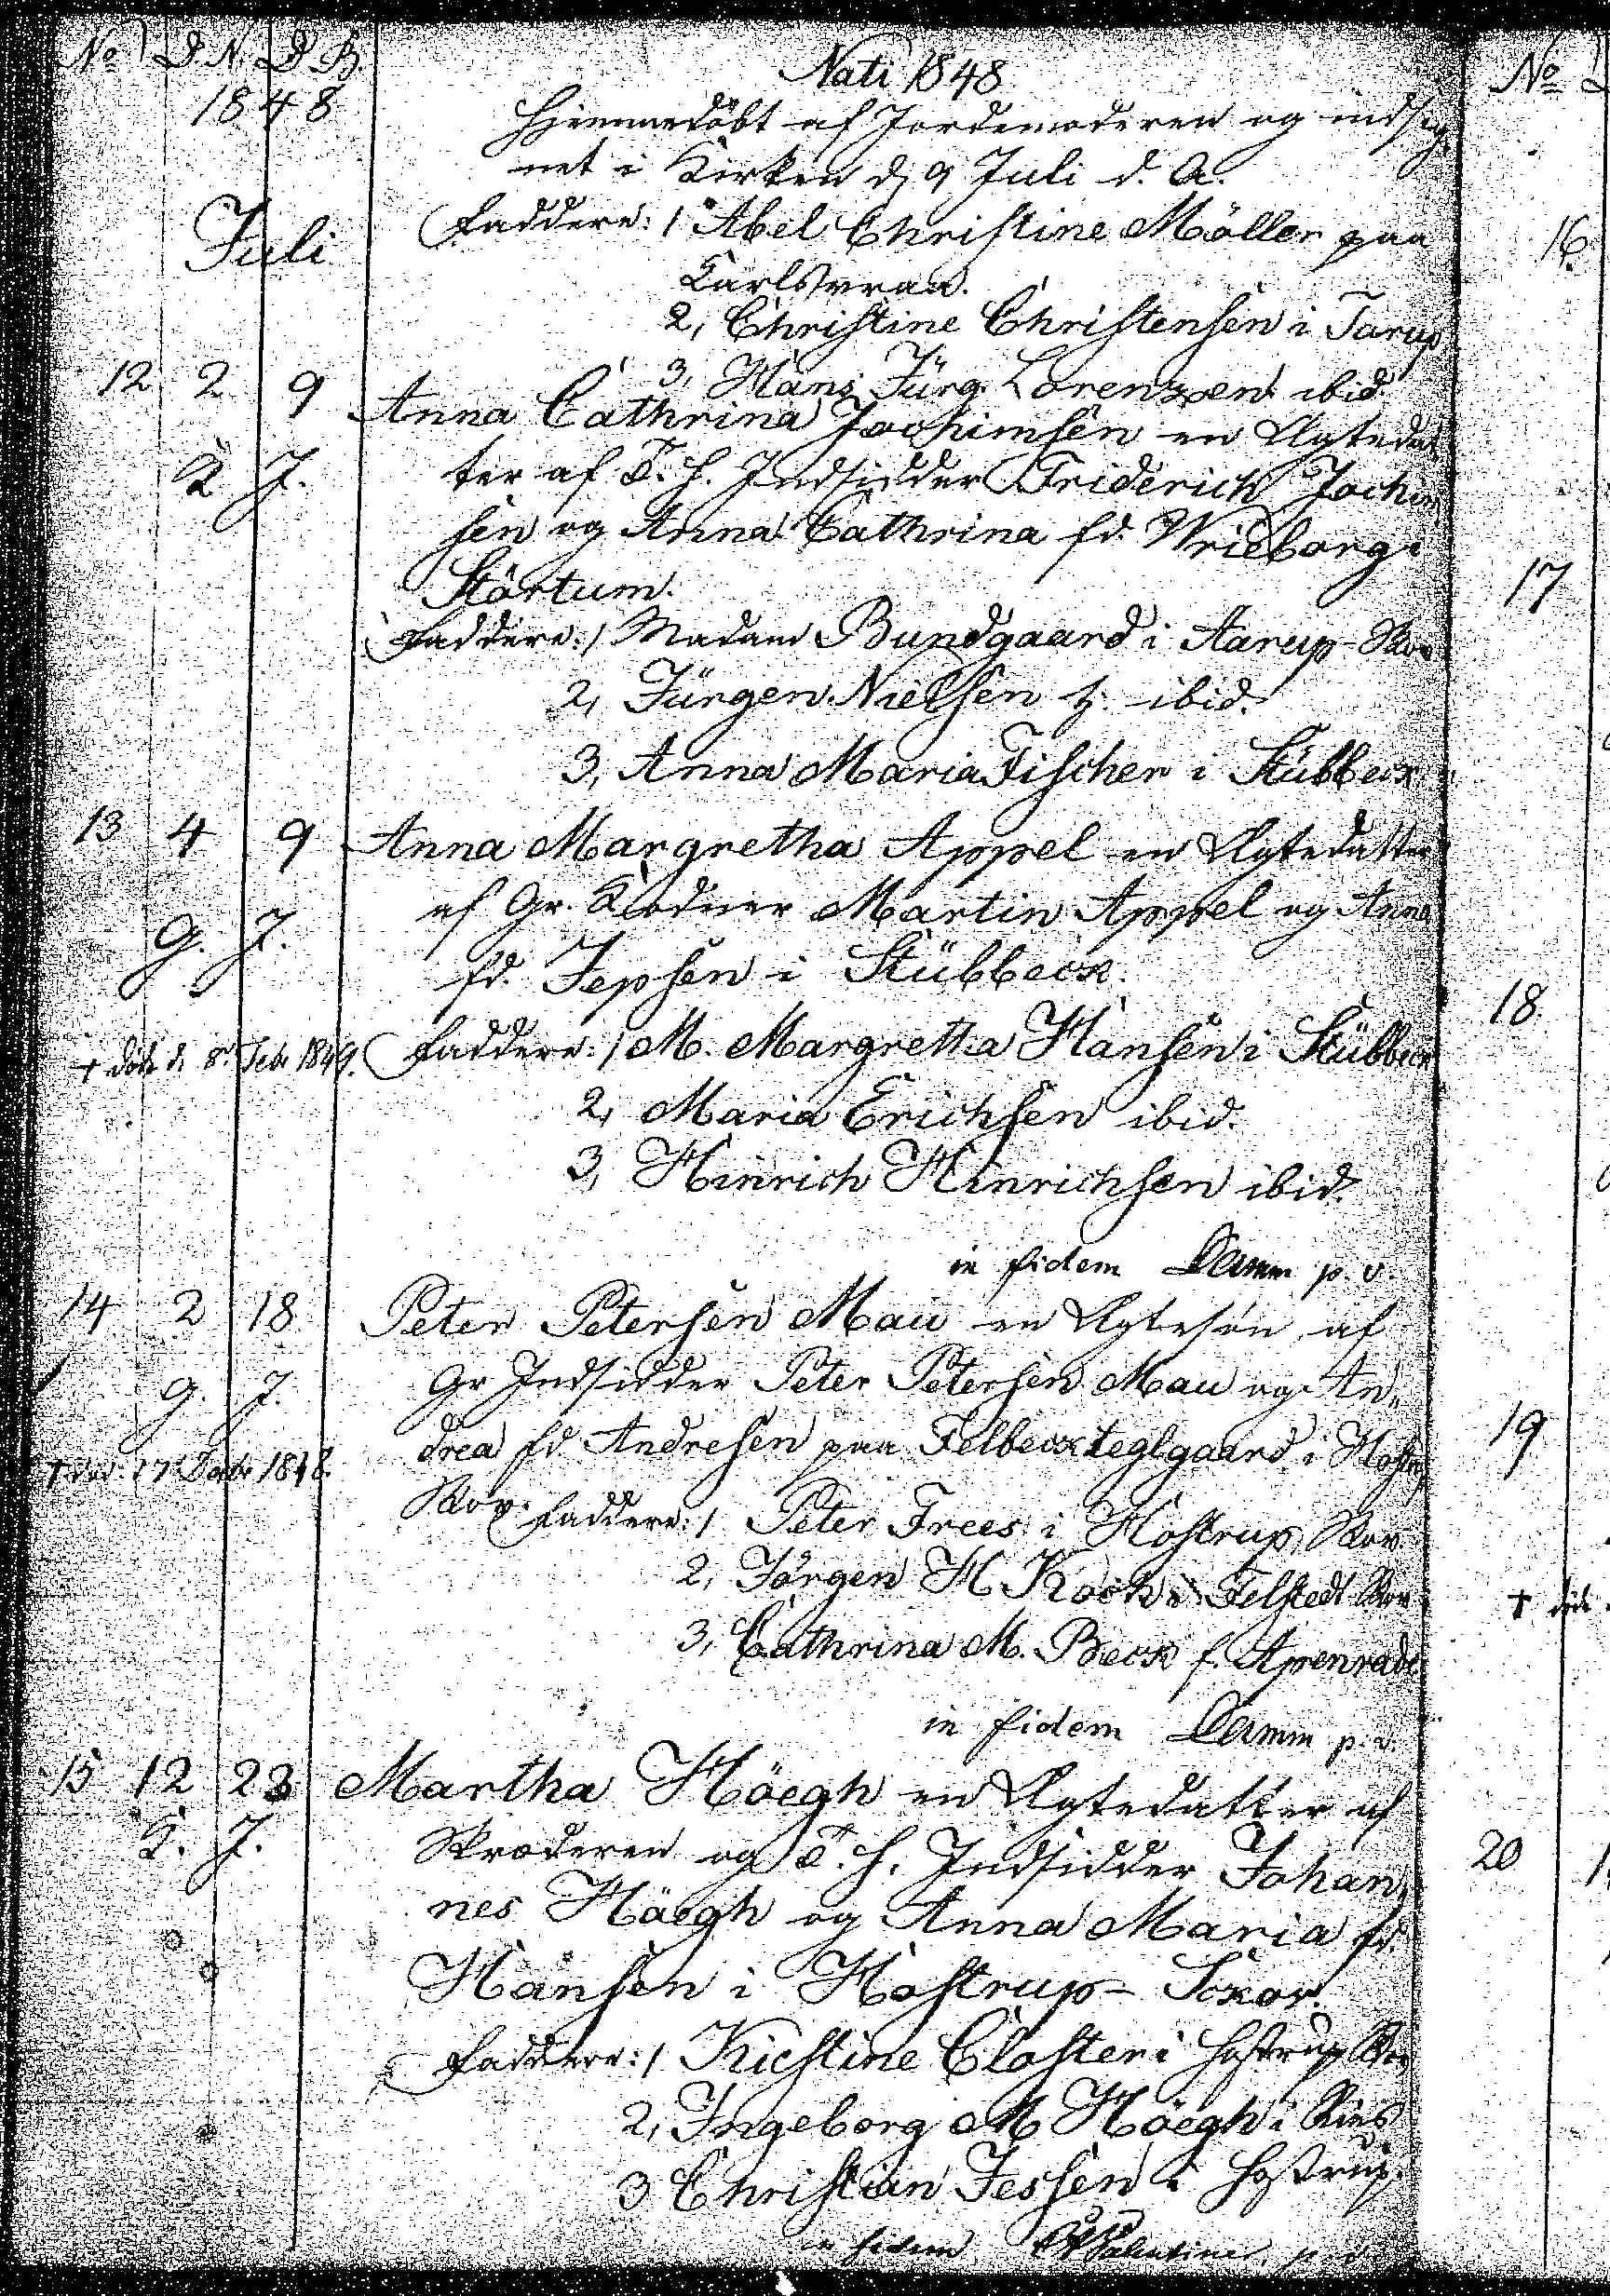 No D. N. D. B. Nati 1848 No
1848
Hjemmedöbt af Jordemoderen og indseg,
net i Kirken d. 9 Juli d. A.
Juli
Faddere: 1 Abel Christine Möller paa 16
Carlsvraa.
2, Christine Christensen i Tarup
3, Hans Jürg. Lorenzen ibid.
12 2 9 Anna Cathrina Jochimsen en Ægtedat
K J. ter af T. H. Indsidder Friderich Jochim
sen og Anna Cathrina fd. Vrieborg i
Störtum. 17
Faddere: 1 Madam Bundgaard i Aarup-Skov
2, Jürgen Nielsen ibid.
3, Anna Maria Fischer i Stübbeck
13 4 9 Anna Margretha Appel en Ægtedatter
G. J. af Gr. Kaadner Martin Appel og Anna
fd. Jepsen i Stübbeck. 18
† döde d. 8 Feb 1849. Faddere: 1 M. Margretha Hansen i Stübbeck
2, Maria Erichsen ibid.
3, Hinrich Hinrichsen ibid.
in fidem Damm p. v.
14 2 18 Peter Petersen Mau en Ægtesön af
G. J. Gr Indsidder Peter Petersen Mau og An,,
drea fd Andresen paa Felbeckteglgaard i Hostrup 19
† död: 17 Decbr 1848.
Skov. Faddere: 1 Peter Frees i Hostrup Skov
2, Jörgen H. Kock i Felstedt Skov † död
3, Cathrina M. Beck f. Apenrade
in fidem Damm p. v.
15 12 23 Martha Höegh en Ægtedatter af
K. J. Skræderen og T. H. Indsidder Johan, 20
nes Höegh og Anna Maria fd.
Hansen i Hostrup-Sckov.
Faddere: 1 Kiestine Closter i Hostrup Skov
2, Ingeborg M Höegh i Ries
3 Christian Jessen i Hostrup.
in fidem Valentiner p. v.